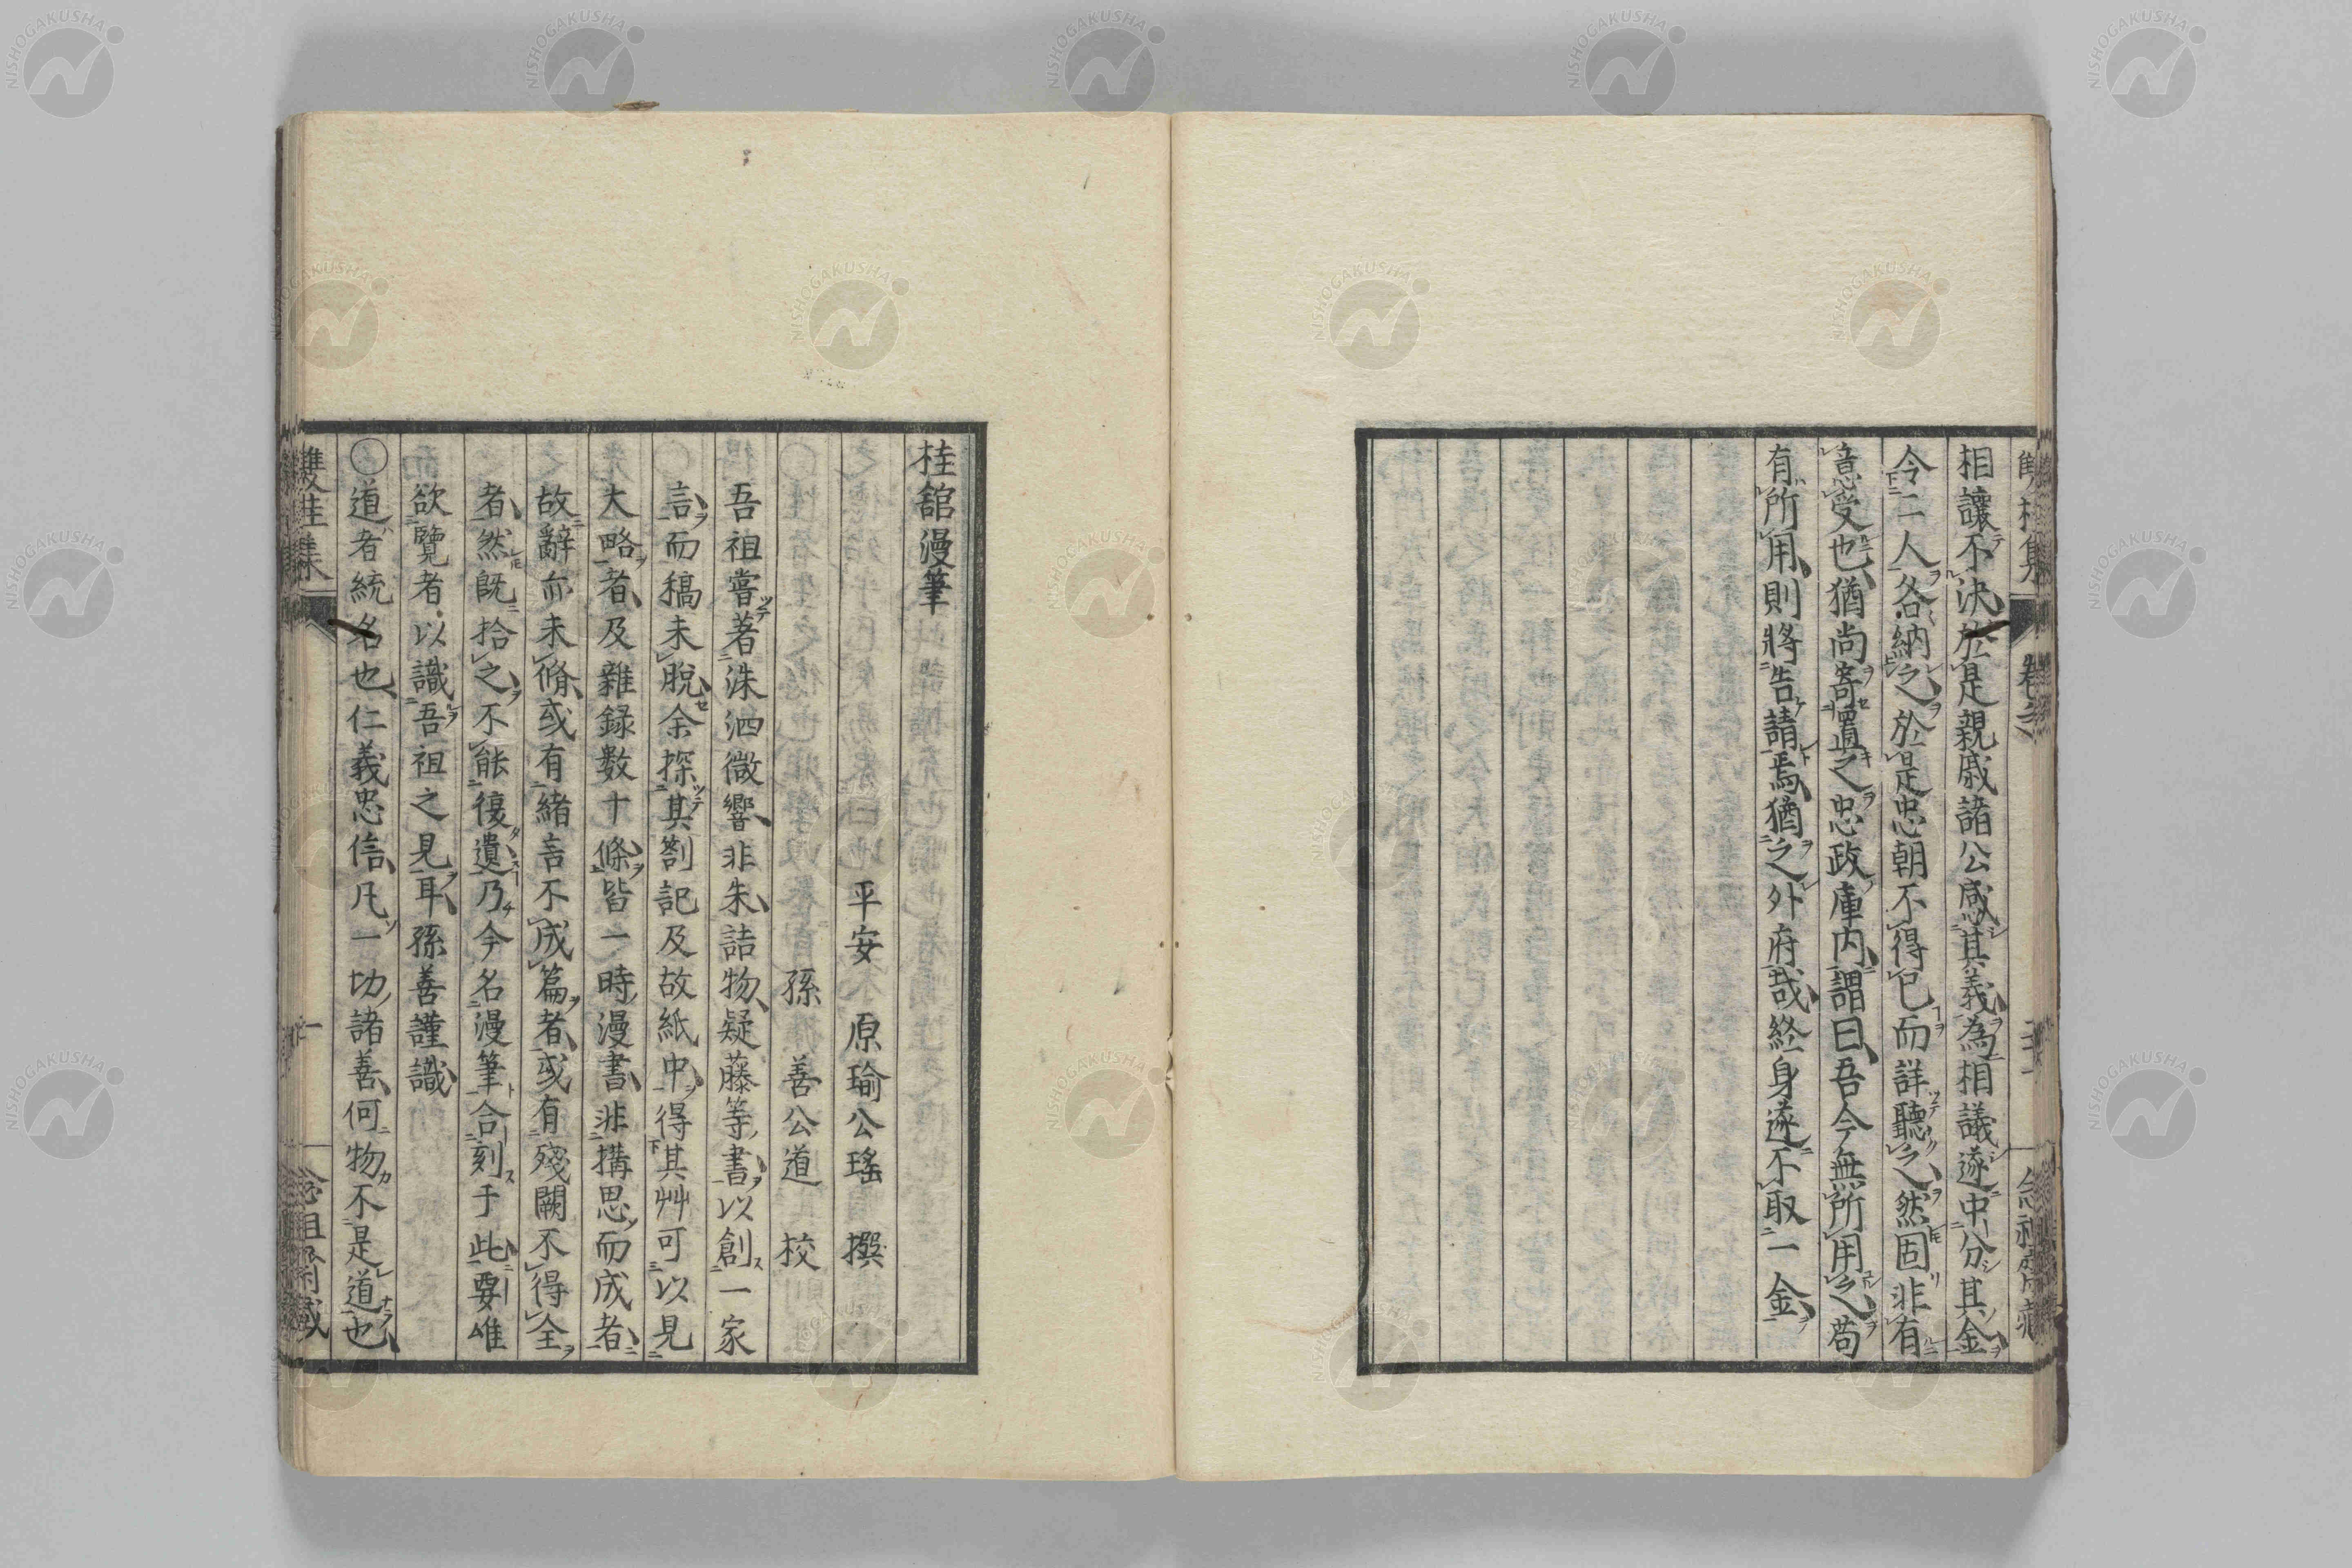 相讓不決於是親戚諸公感其義為相議遂中分其金
令二人各納之於是忠朝不得已而詳聽之然固非有
意受也猶尚寄置之忠政庫內謂曰吾今無所用之苟
有所用則將告請焉猶之外府哉終身遂不取一金
桂舘漫筆
平安　原瑜公瑤　撰
孫　善公道　校
吾祖嘗著洙泗微響非朱詰物疑藤等書以創一家
言而稿未脫余探其劄記及故紙中得其艸可以見
大略者及雜録數十條皆一時漫書非搆思而成者
故辭亦未脩或有緒言不成篇者或有殘闕不得全
者然既拾之不能復遺乃今名漫筆合刻于此要唯
欲覽者以識吾祖之見耳孫善謹識
○道者統名也仁義忠信凡一切諸善何物不是道也
雙桂集
NISHOGAKUSHA